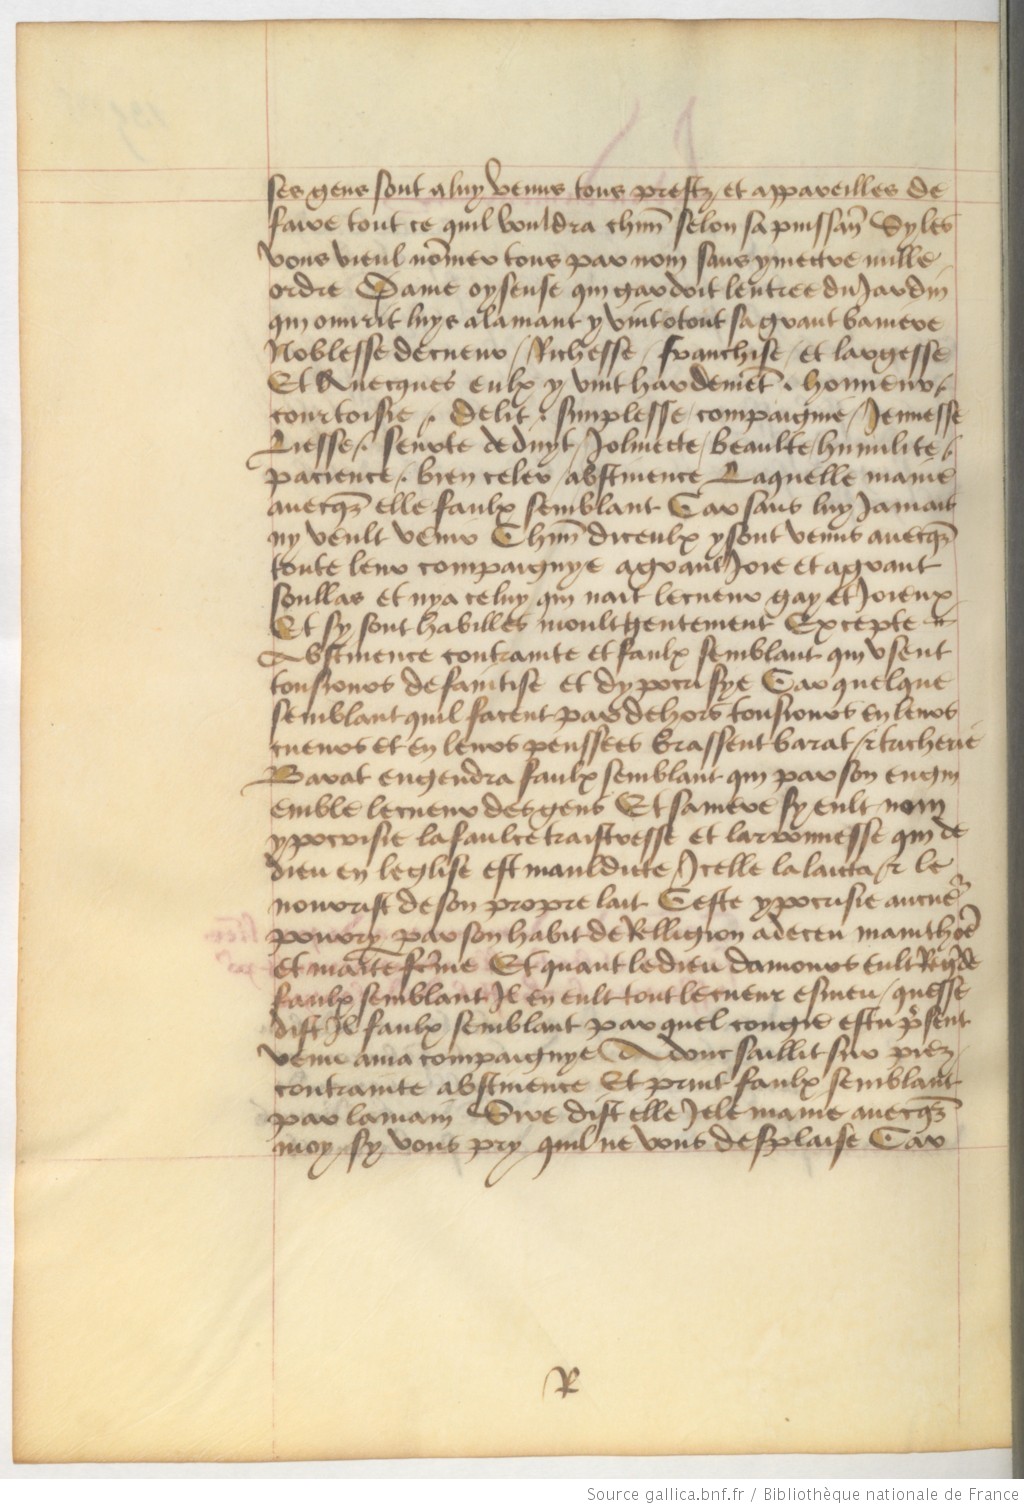 ses gens sont a luy venus tous prestz / et appareilles de
faire tout ce quil vouldra chūn selon sa puissan̄ Sy les
vous vieul nōmer tous par nom sans y mectre nulle
ordre Dame oyseuse qui gardoit lentree du Jardin
qui ouvrit luys a lamant y vint o tout sa grant baniere
Noblesse de cueur / Richesse / franchise / et largesse
Et Avecques eulx y vint hardemēt / honneur /
courtoisie / Delit / simplesse / compaignie / Jeunesse
Liesse / seurte deduyt / Jolivecte / beaulte / humilite /
pacience / bien celer / abstinence Laquelle maine
avecq̄z elle faulx semblant Car sans luy Jamais
ny veult venir Chūn diceulx y sont venus avecq̄z
toute leur compaignye a grant Joie et a grant
soullas et nya celuy qui nait le cueur gay et Joieux
Et sy sont habilles moult gentement Excepte
Abstinence contrainte et faulx semblant qui usent
tousiours de faintise et dypocrisye Car quelque
semblant quil facent par dehors tousiours en leurs
cueurs et en leurs penssees brassent barat / et tricherie
Barat engendra faulx semblant qui par son engin
emble le cueur des gens Et sa mere sy eult nom
ypocrisie la faulce traistresse et larronnesse qui de
dieu en leglise est mauldicte / Icelle la laicta / et le
nourrist de son propre lait Ceste ypocrisie au cue᷑r
pourry par son habit de Relligion a deceu maint hōe
et mainte fēme Et quant le dieu damours eult Regarde
faulx semblant Il en eult tout le cueur esmeu / quesse
dist Il faulx semblant par quel congie es tu p̄sent
venu a ma compaignye Adonc saillit sur piez
contrainte abstinence Et print faulx semblant
par la main Sire dist elle Je le maine avecq̄z
moy / sy vous pry quil ne vous desplaise Car
R
Source gallica.bnf.fr / Bibliothèque nationale de France